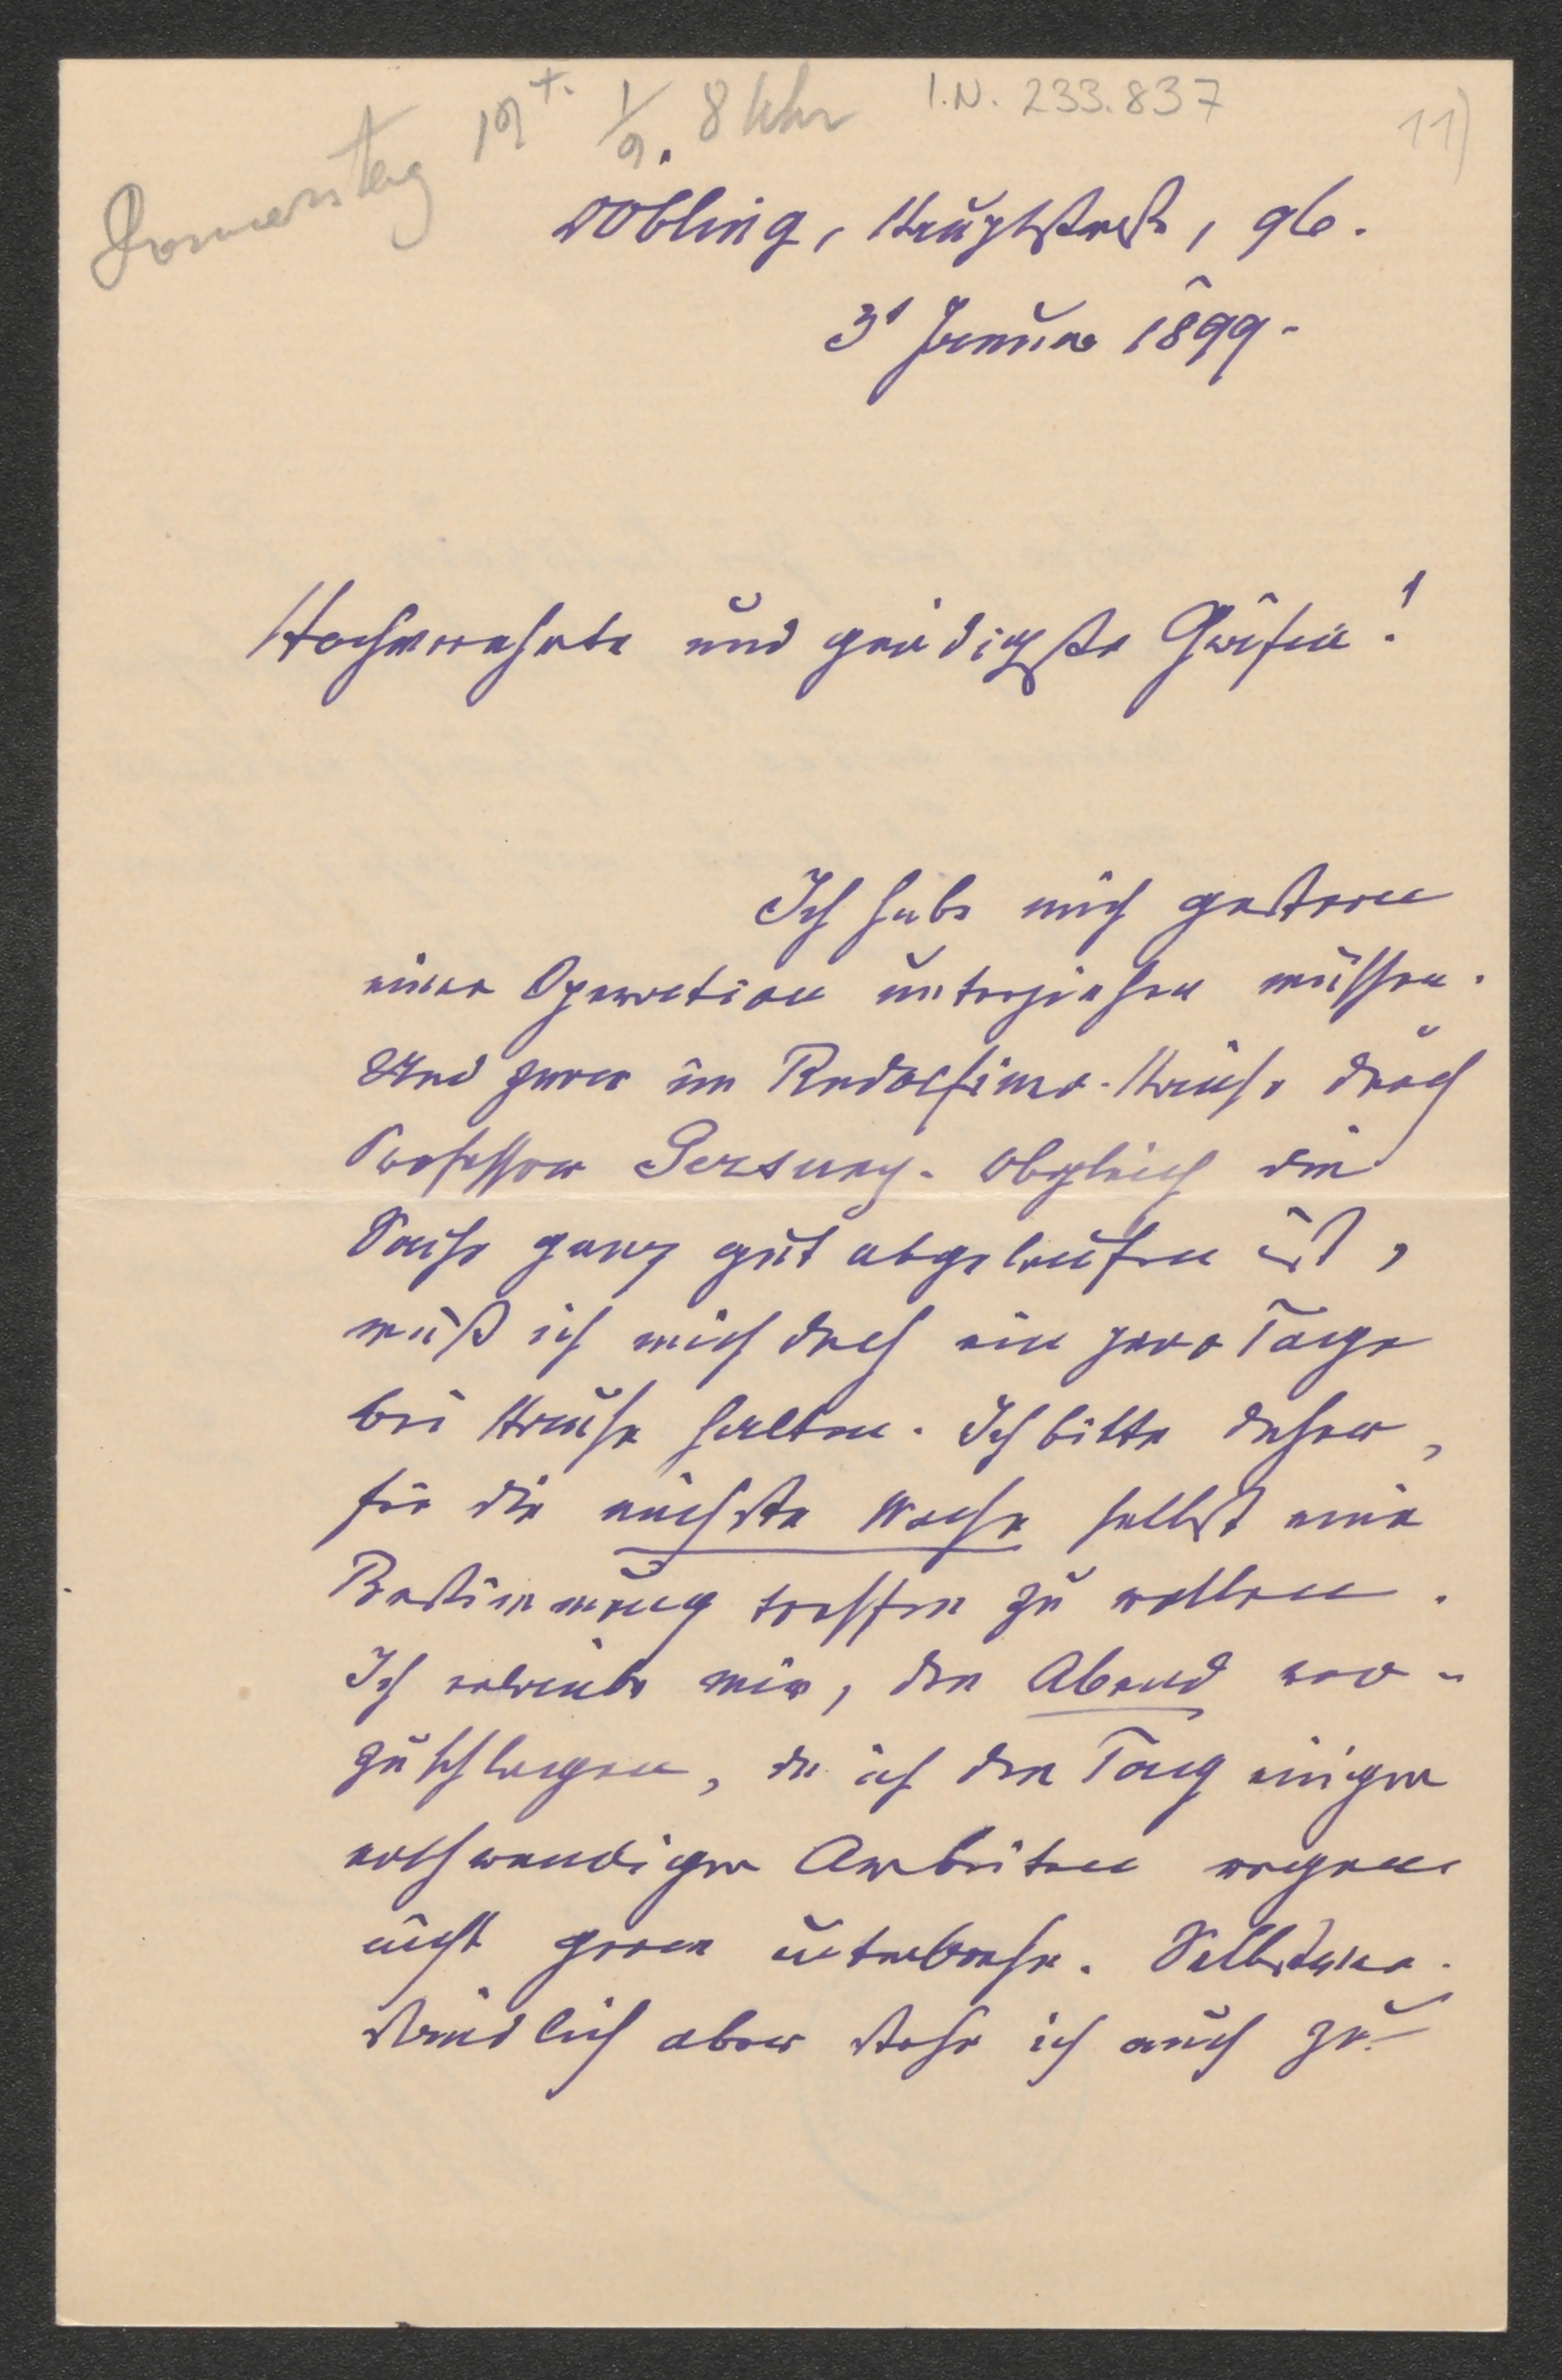 Donnerstag 19t. 1/9. 8 Uhr
I.N. 233.837
11)
Döbling, Hauptstraße, 96.
3' Januar 1899.
Hochverehrte und gnädigste Gräfin!
Ich habe mich gestern
einer Operation unterziehen müssen.
Und zwar im Rudolfiner-Hause durch
Professor Gersuny. Obgleich die
Sache ganz gut abgelaufen ist,
muß ich mich doch ein paar Tage
bei Hause halten. Ich bitte daher,
für die nächste Woche selbst eine
Bestimmung treffen zu wollen.
Ich erlaube mir, den Abend vor-
zuschlagen, da ich den Tag einiger
nothwendiger Arbeiten wegen
nicht gerne unterbreche. Selbstver-
ständlich aber stehe ich auch zu